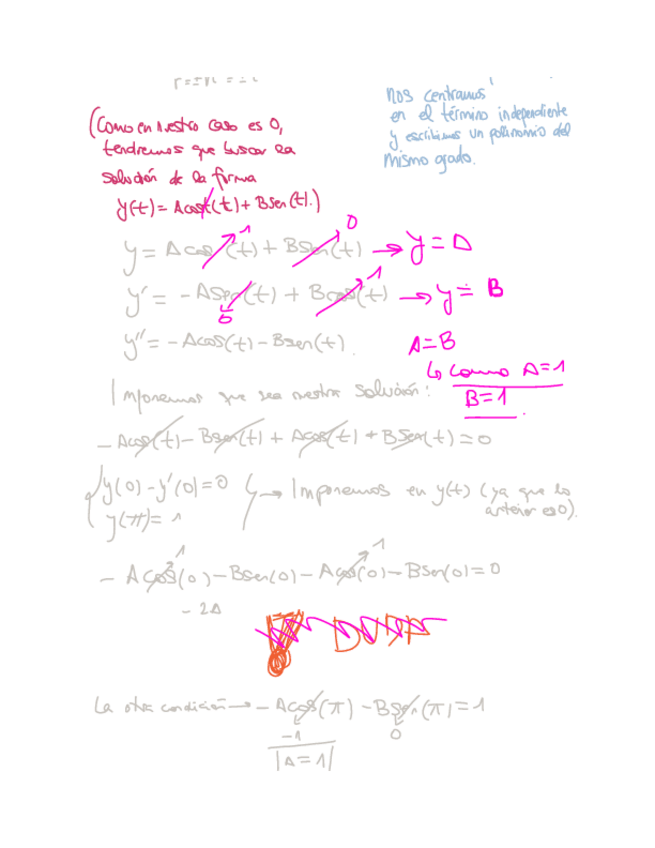 nos centramos
en el término independiente
y escribimos un polinomio del
mismo grado.
(Como en nuestro caso es 0,
tendremos que buscar la
solución de la forma
y(t) = Acos(t) + Bsen(t).)
y = Acos(t) + Bsen(t) → y = A
1
0
y' = -Asen(t) + Bcos(t) → y = B
0
1
y'' = -Acos(t) - Bsen(t).
A=B
↳ como A=1
B=1
Imponemos que sea nuestra solución:
- Acos(t) - Bsen(t) + Acos(t) + BSen(t) = 0
y(0) - y'(0) = 0
y(π) = 1
→ Imponemos en y(t) (ya que lo
anterior es 0).
- Acos(0) - Bsen(0) - Acos(0) - Bsen(0) = 0
1
1
- 2A
DUDA
La otra condición → - Acos(π) - BSen(π) = 1
-1
0
|A = 1|